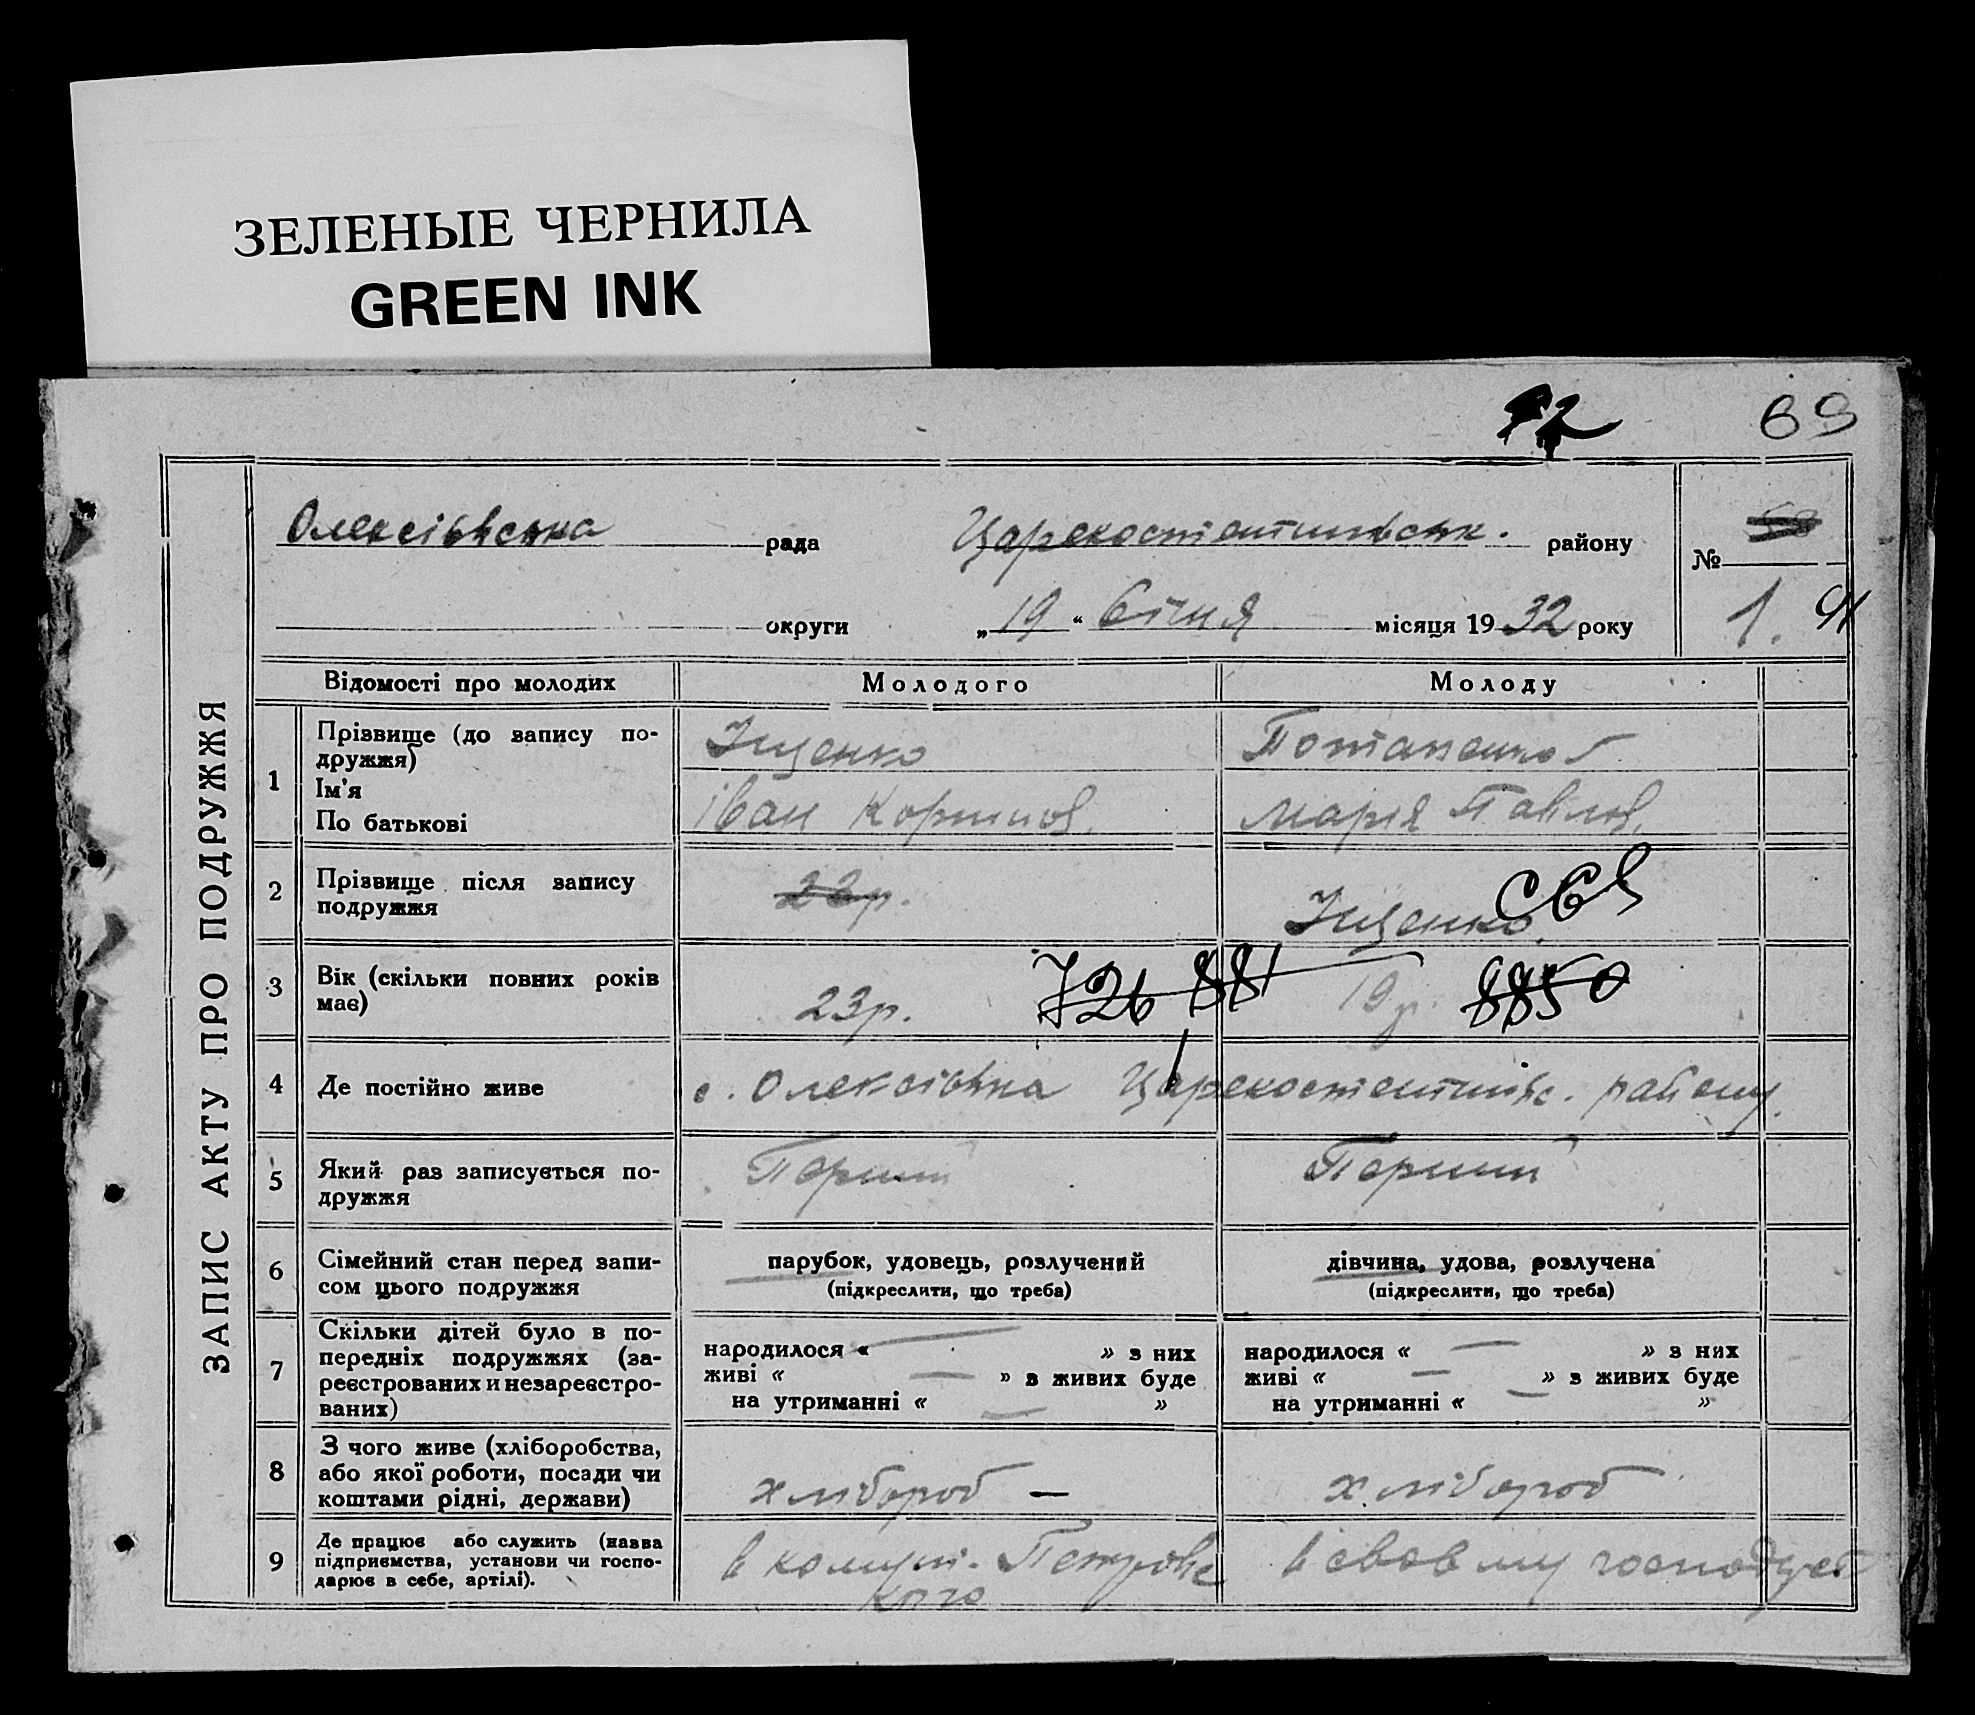 ЗЕЛЕНЫЕ ЧЕРНИЛА
GREEN INK
69
ЗАПИС АКТУ ПРО ПОДРУЖЖЯ
Олексіївська рада Царекостентинівськ. району №
округи „19“ Січня місяця 1932 року 1.
Відомості про молодих Молодого Молоду
1 Прізвище (до запису по-
дружжя)
Іщенко Потапенко
Ім'я
По батькові
Іван Марія Павлов.
2 Прізвище після запису
подружжя
22р. Іщенко
3 Вік (скільки повних років
має)
23р. 726 881 19р. 8850
4 Де постійно живе с. Олексіївка Царекостентинівс. району.
5 Який раз записується по-
дружжя
Перший Перший
6 Сімейний стан перед запи-
сом цього подружжя
парубок, удовець, розлучений
(підкреслити, що треба)
дівчина, удова, розлучена
(підкреслити, що треба)
7 Скільки дітей було в по-
передніх подружжях (за-
реєстрованих и незареєстро-
ваних)
народилося « — » з них
живі « — » з живих буде
на утриманні « — »
народилося « — » з них
живі « — » з живих буде
на утриманні « — »
8 З чого живе (хліборобства,
або якої роботи, посади чи
коштами рідні, держави)
хлібороб — хлібороб
9 Де працює або служить (назва
підприємства, установи чи госпо-
дарює в себе, артілі).
в комун. Петровс
кого
в своєму